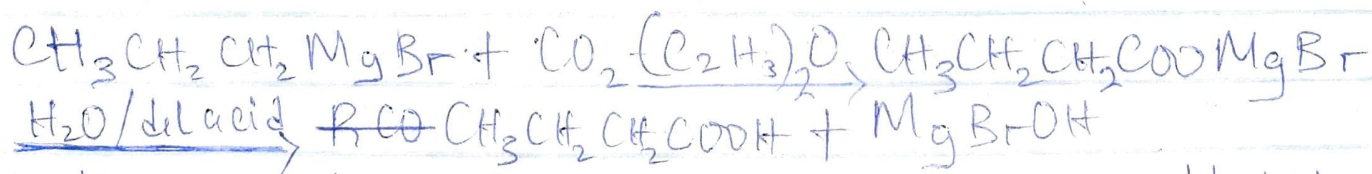 CH₃CH₂CH₂MgBr + CO₂ (C₂H₃)₂O → CH₃CH₂CH₂COOMgBr
H₂O/dil acid → R CO CH₃CH₂CH₂COOH + MgBrOH